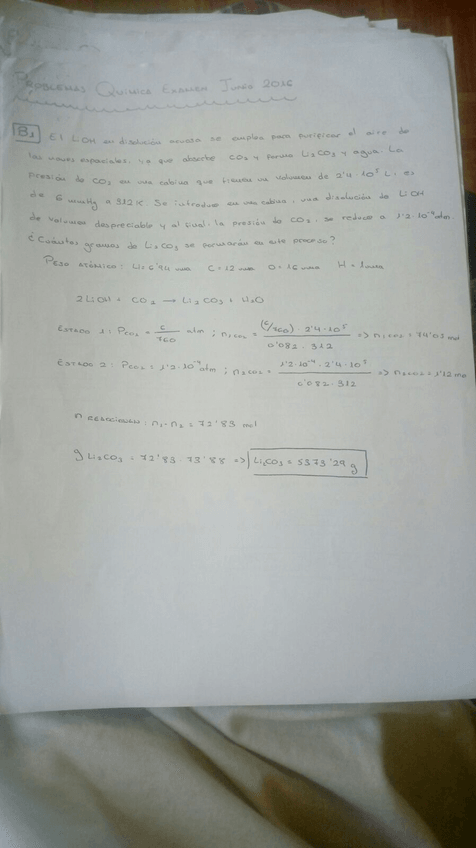 PROBLEMAS QUIMICA EXAMEN JUNIO 2016
B1 El LiOH en disolución acuosa se emplea para purificar el aire de
las naves espaciales, ya que absorbe CO2 y forma Li2CO3 y agua. La
presión de CO2 en una cabina que tiene un volumen de 2'4·10⁵ L, es
de 6 mmHg a 312K. Se introduce en una cabina, una disolución de LiOH
de volumen despreciable y al final, la presión de CO2 se reduce a 1'2·10⁻⁴ atm.
¿Cuántos gramos de Li2CO3 se formarán en este proceso?
PESO ATÓMICO: Li = 6'94 uma C = 12 uma O = 16 uma H = 1 uma
2LiOH + CO2 → Li2CO3 + H2O
ESTADO 1: PCO2 = 6/760 atm ; n1CO2 = (6/760) · 2'4·10⁵ / 0'082 · 312 => n1CO2 = 74'05 mol
ESTADO 2: PCO2 = 1'2·10⁻⁴ atm ; n2CO2 = 1'2·10⁻⁴ · 2'4·10⁵ / 0'082 · 312 => n2CO2 = 1'12 mo
n1 - n2 = 72'83 mol
g Li2CO3 = 72'83 · 73'88 => Li2CO3 = 5373'29 g